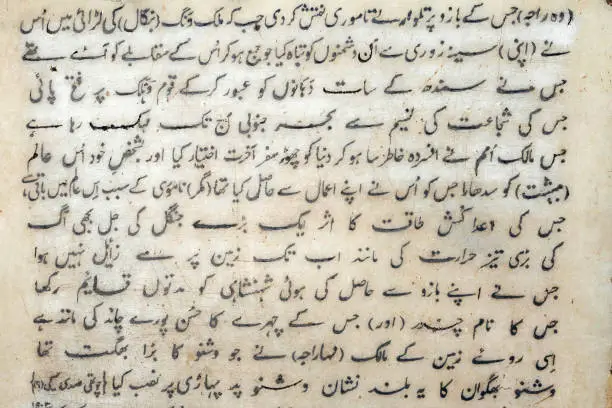 (وہ راجہ) جس کے بازو پر تلوار نے ناموری نقش کر دی جب کہ ملک ونگ (بنگال) کی لڑائی میں اُس
نے (اپنی) سینہ زوری سے اُن دشمنوں کو تباہ کیا جو جمع ہو کر اُس کے مقابلے کو آئے تھے
جس نے سندھ کے سات دہانوں کو عبور کرکے قوم وہلک پر فتح پائی
جس کی شجاعت کی نسیم سے بحر جنوبی آج تک مہک رہا ہے
جس مالک اُمم نے افسردہ خاطر سا ہو کر دنیا کو چھوڑ سفر آخرت اختیار کیا اور بشخص خود اُس عالم
(بہشت) کو سدھارا جس کو اُس نے اپنے اعمال سے حاصل کیا تھا (مگر) ناموری کے سبب اِس عالم میں باقی ہے
جس کی اعدا کُش طاقت کا اثر ایک بڑے جنگل کی جل بجھی آگ
کی بڑی تیز حرارت کی مانند اب تک زمین پر سے زائل نہیں ہوا
جس نے اپنے بازو سے حاصل کی ہوئی شہنشاہی کو مدتوں قایم رکھا
جس کا نام چندر (اور) جس کے چہرے کا حُسن پورے چاند کی مانند ہے
اِسی رونے زمین کے مالک (مہاراجہ) نے جو وشنو کا بڑا بھگت تھا
وشنو بھگوان کا یہ بلند نشان وشنو پد پہاڑی پر نصب کیا {چوتھی صدی